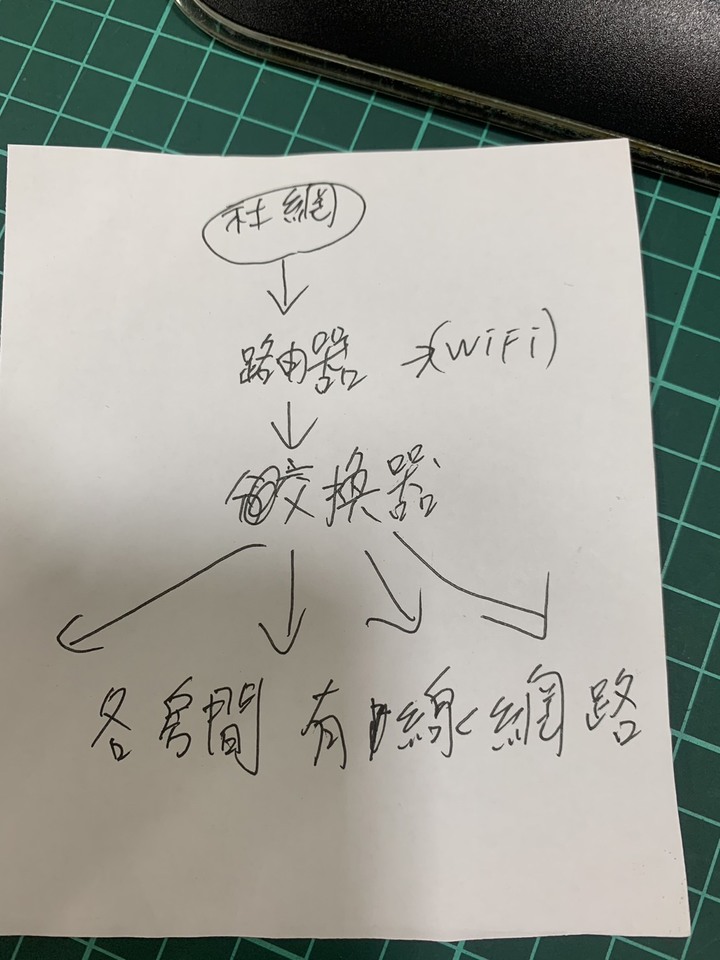 社網
路由器 (WiFi)
交換器
各房間 有線網路